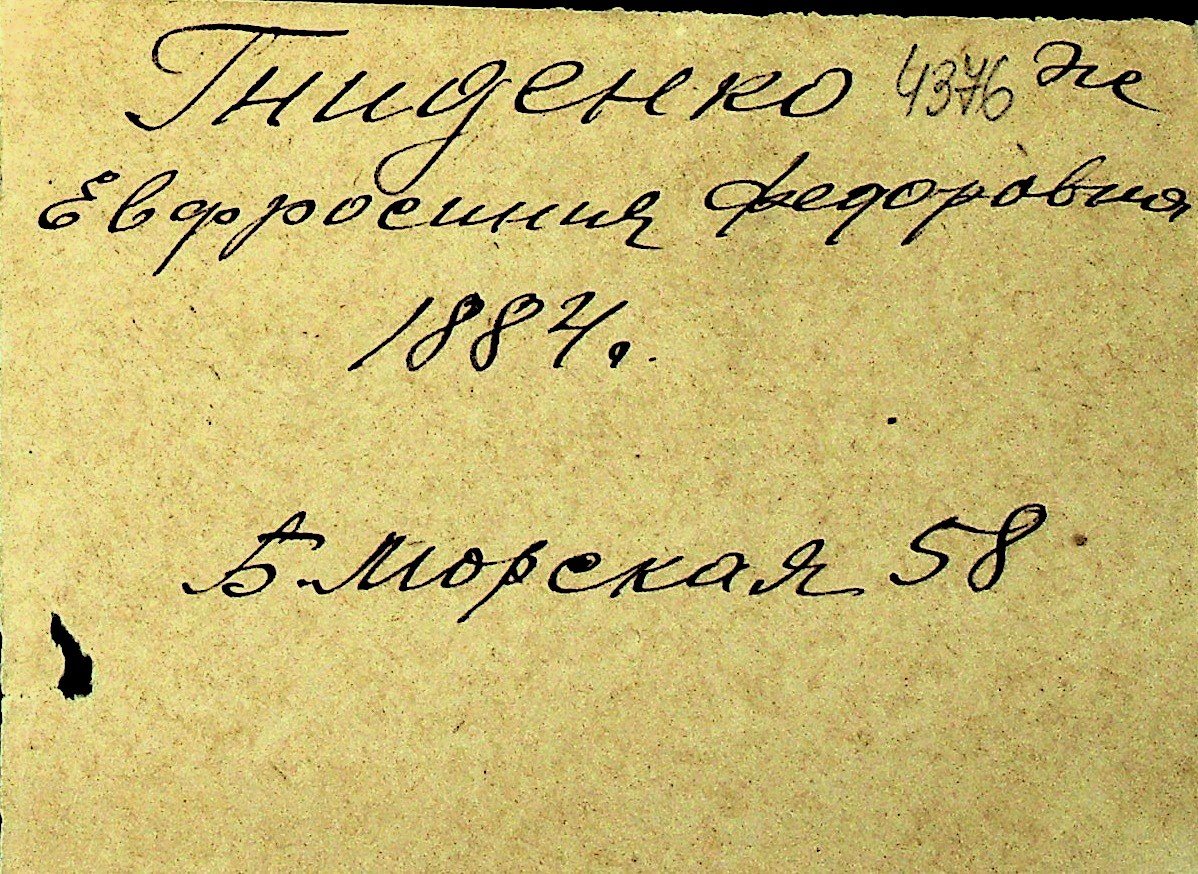 Гниденко 4376 же
Евфросиния Федоровна
1884г.
Б. Морская 58